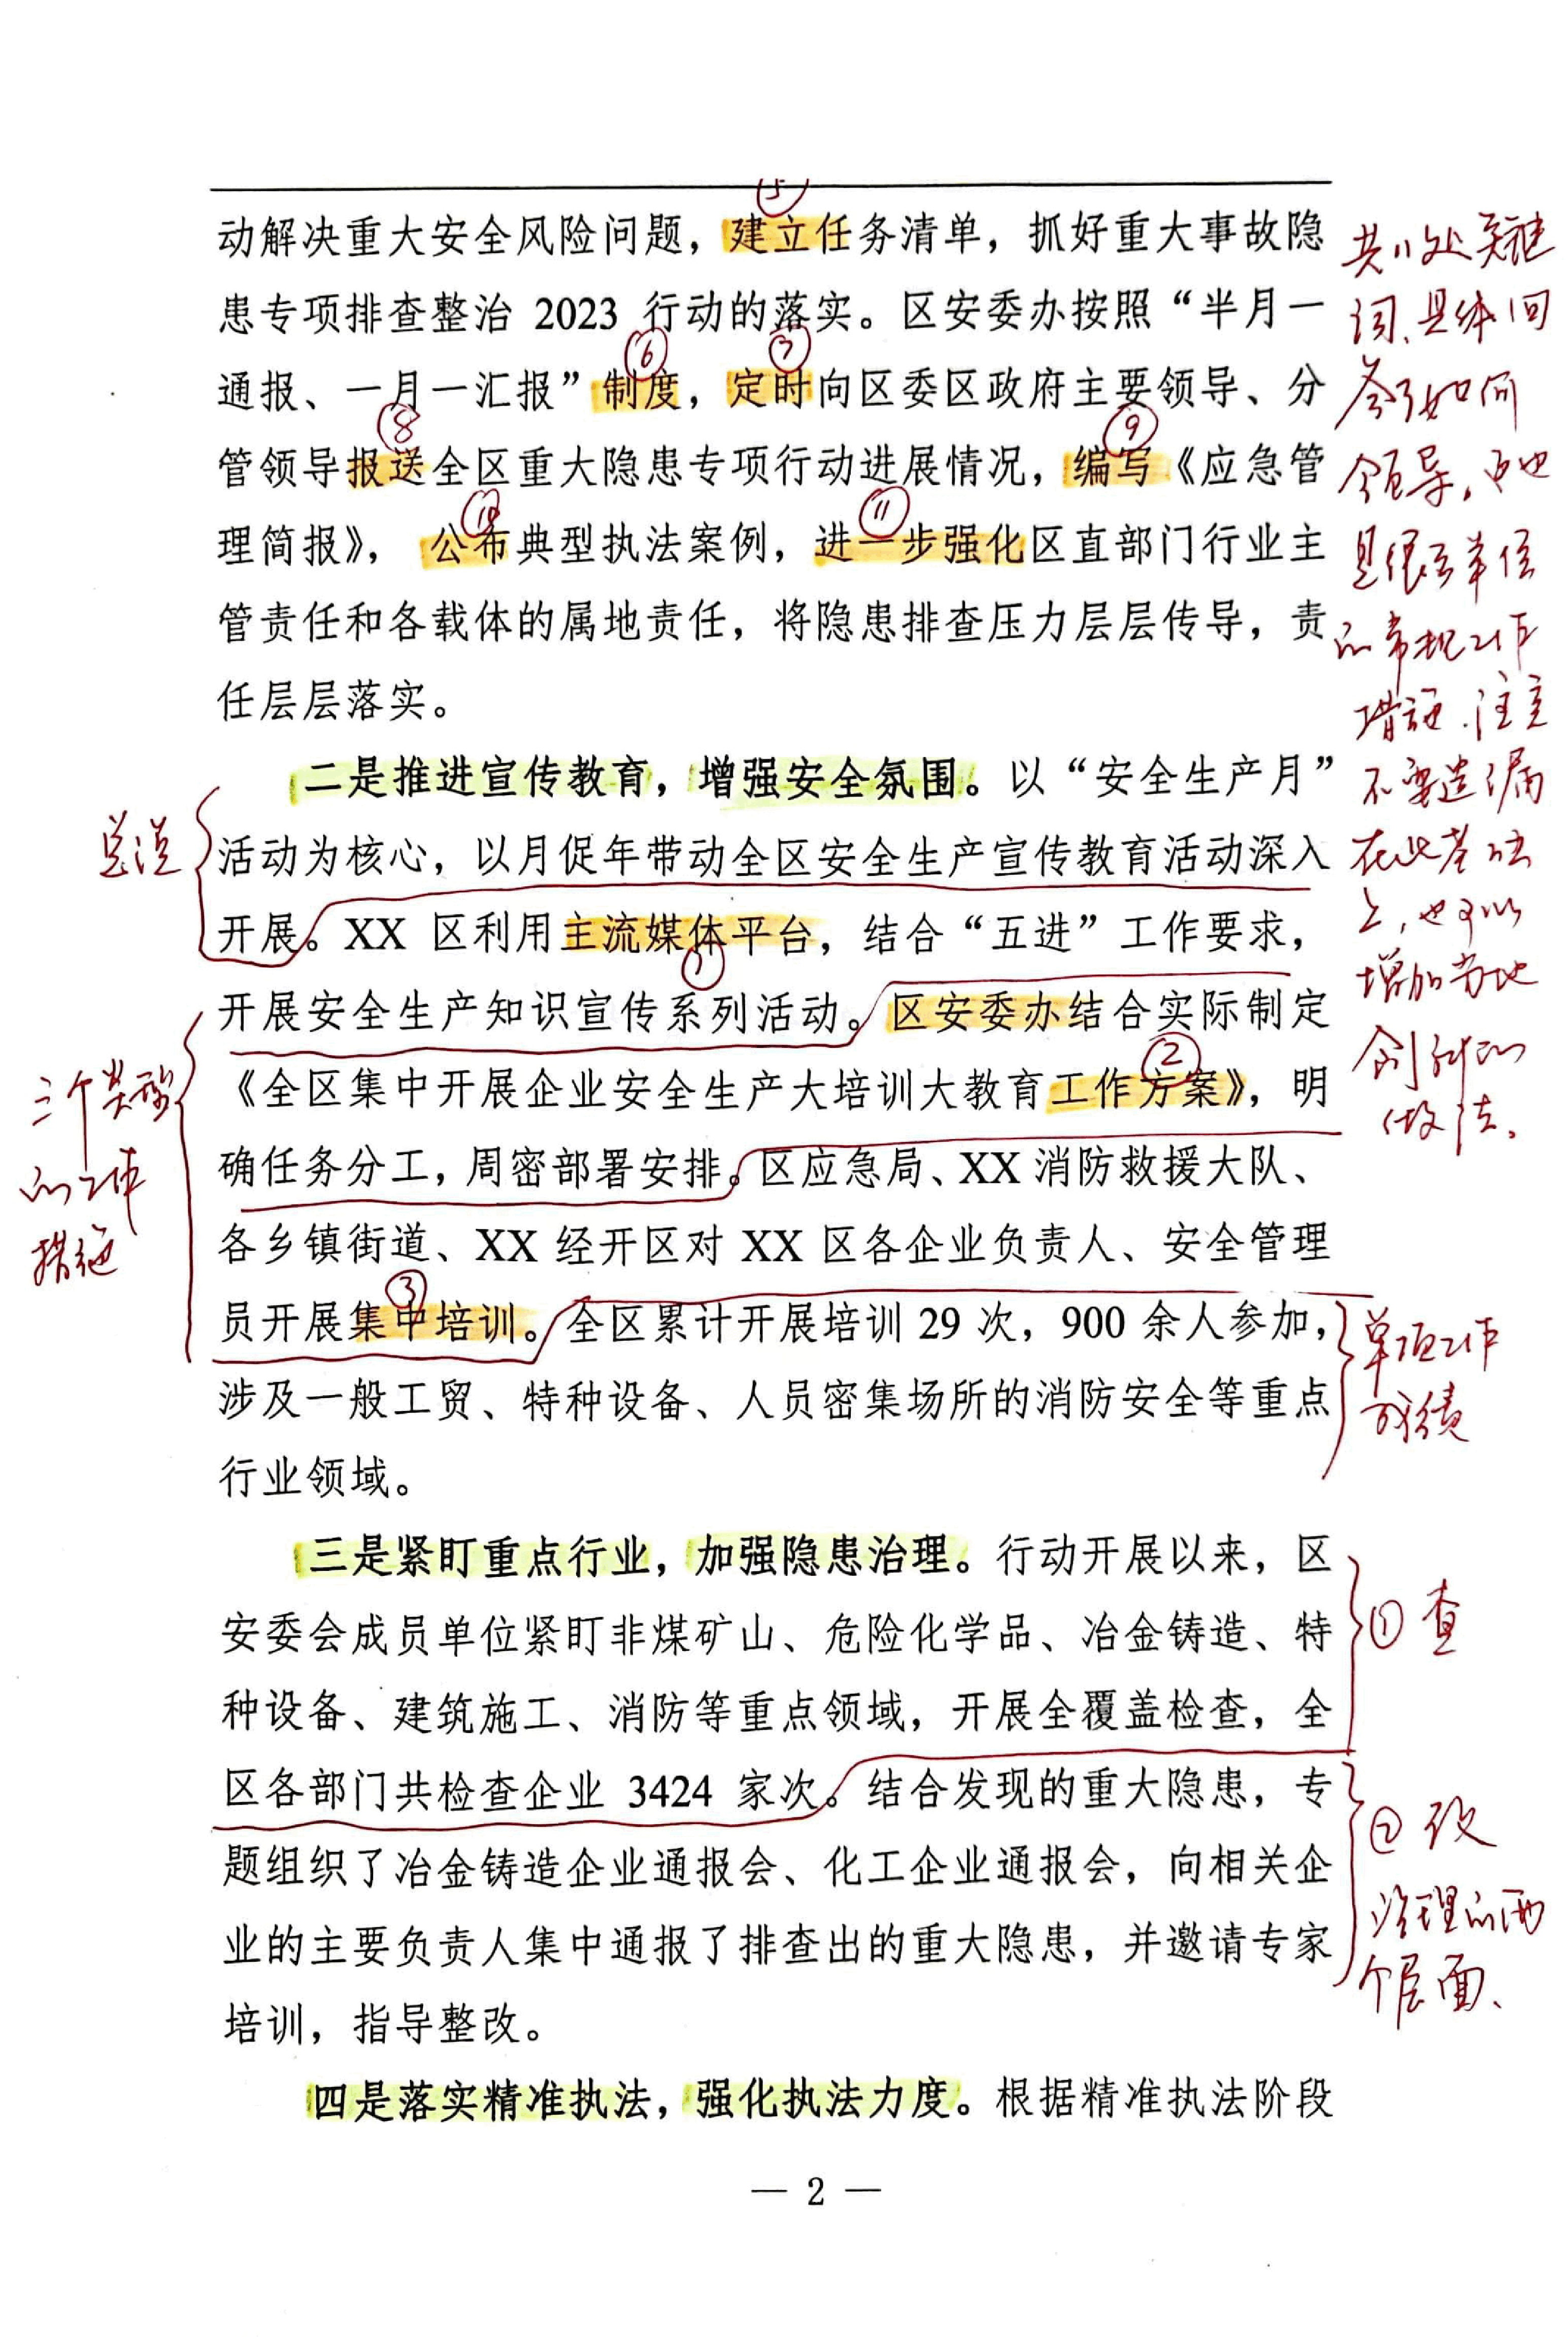 ⑤
动解决重大安全风险问题，建立任务清单，抓好重大事故隐
患专项排查整治 2023 行动的落实。区安委办按照“半月一
⑥ ⑦
通报、一月一汇报”制度，定时向区委区政府主要领导、分
⑧ ⑨
管领导报送全区重大隐患专项行动进展情况，编写《应急管
⑩ ⑪
理简报》，公布典型执法案例，进一步强化区直部门行业主
管责任和各载体的属地责任，将隐患排查压力层层传导，责
任层层落实。
共11处关键
词、具体回
答了如何
领导，也
是很多单位
的常规工作
措施．注意
不要遗漏
在此基础
上，也可以
增加当地
创新的
做法。
二是推进宣传教育，增强安全氛围。以“安全生产月”
活动为核心，以月促年带动全区安全生产宣传教育活动深入
开展。XX 区利用主流媒体平台，结合“五进”工作要求，
①
开展安全生产知识宣传系列活动。区安委办结合实际制定
②
《全区集中开展企业安全生产大培训大教育工作方案》，明
确任务分工，周密部署安排。区应急局、XX 消防救援大队、
各乡镇街道、XX 经开区对 XX 区各企业负责人、安全管理
③
员开展集中培训。全区累计开展培训 29 次，900 余人参加，
涉及一般工贸、特种设备、人员密集场所的消防安全等重点
行业领域。
总说
三个类型
的工作
措施
单项工作
成绩
三是紧盯重点行业，加强隐患治理。行动开展以来，区
安委会成员单位紧盯非煤矿山、危险化学品、冶金铸造、特
种设备、建筑施工、消防等重点领域，开展全覆盖检查，全
区各部门共检查企业 3424 家次。结合发现的重大隐患，专
题组织了冶金铸造企业通报会、化工企业通报会，向相关企
业的主要负责人集中通报了排查出的重大隐患，并邀请专家
培训，指导整改。
① 查
② 改
治理的两
个层面、
四是落实精准执法，强化执法力度。根据精准执法阶段
— 2 —